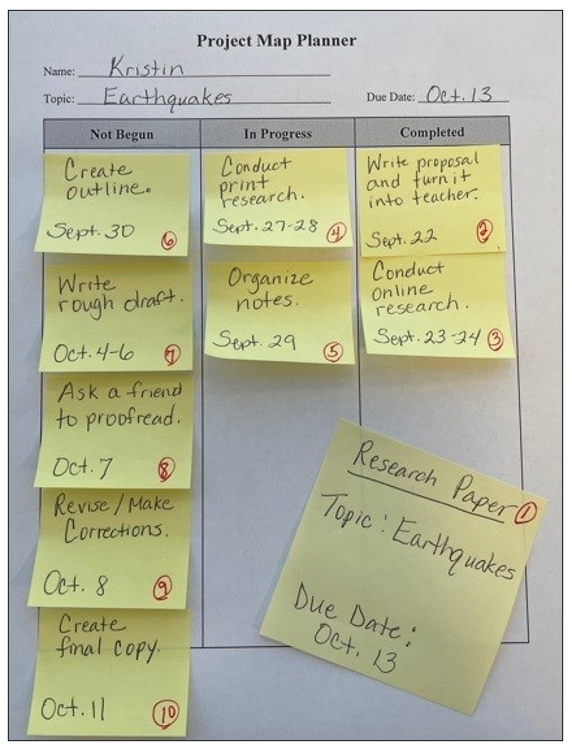 Project Map Planner
Name: Kristin
Topic: Earthquakes
Due Date: Oct. 13
Not Begun
In Progress
Completed
Create
outline.
Sept. 30
6
Write
rough draft.
Oct. 4-6
7
Ask a friend
to proofread.
Oct. 7
8
Revise/Make
Corrections.
Oct. 8
9
Create
final copy.
Oct. 11
10
Conduct
print
research.
Sept. 27-28
4
Organize
notes.
Sept. 29
5
Write proposal
and turn it
into teacher.
Sept. 22
2
Conduct
online
research.
Sept. 23-24
3
Research Paper 1
Topic: Earthquakes
Due Date:
Oct. 13